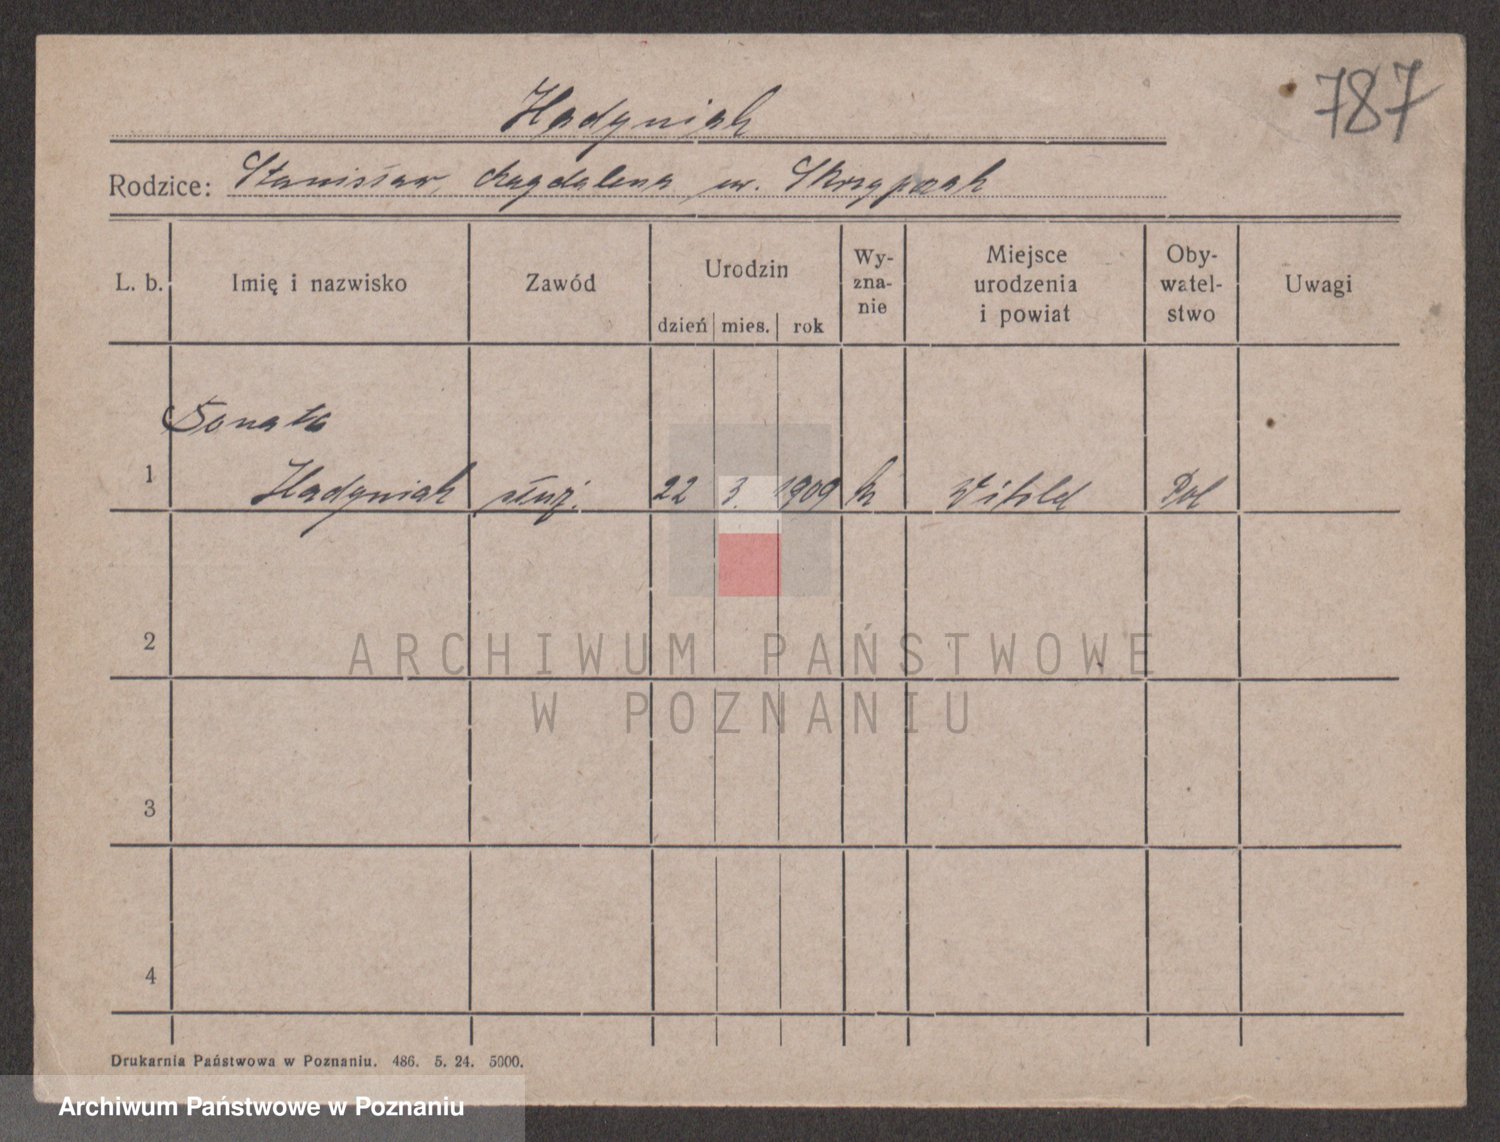 787
Hadyniak
Rodzice: Stanisław, Magdalena ur. Skrzypczak
L. b. Imię i nazwisko Zawód Urodzin dzień mies. rok Wy-zna-nie Miejsce urodzenia i powiat Oby-watel-stwo Uwagi
1 Hadyniak służ. 22 3. 1909 k Pol
2
ARCHIWUM PAŃSTWOWE
W POZNANIU
3
4
Drukarnia Państwowa w Poznaniu. 486. 5. 24. 5000.
Archiwum Państwowe w Poznaniu